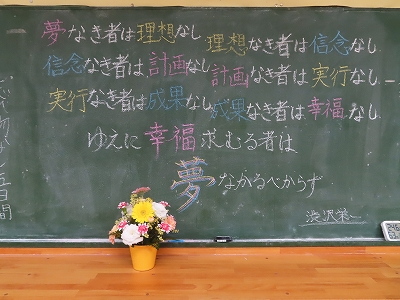 夢なき者は理想なし
理想なき者は信念なし
信念なき者は計画なし
計画なき者は実行なし
実行なき者は成果なし
成果なき者は幸福なし
ゆえに幸福求むる者は
夢なかるべからず
渋沢栄一